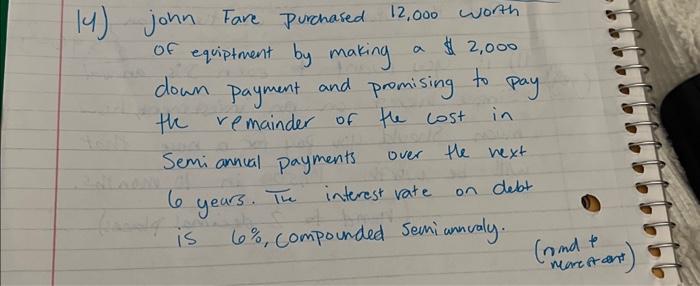 14) john Fare purchased 12,000 worth
of equiptment by making a $ 2,000
down payment and promising to pay
the remainder of the cost in
Semi annual payments over the next
6 years. The interest rate on debt
is 6%, compounded semi annualy.
(round to
nearest cent)